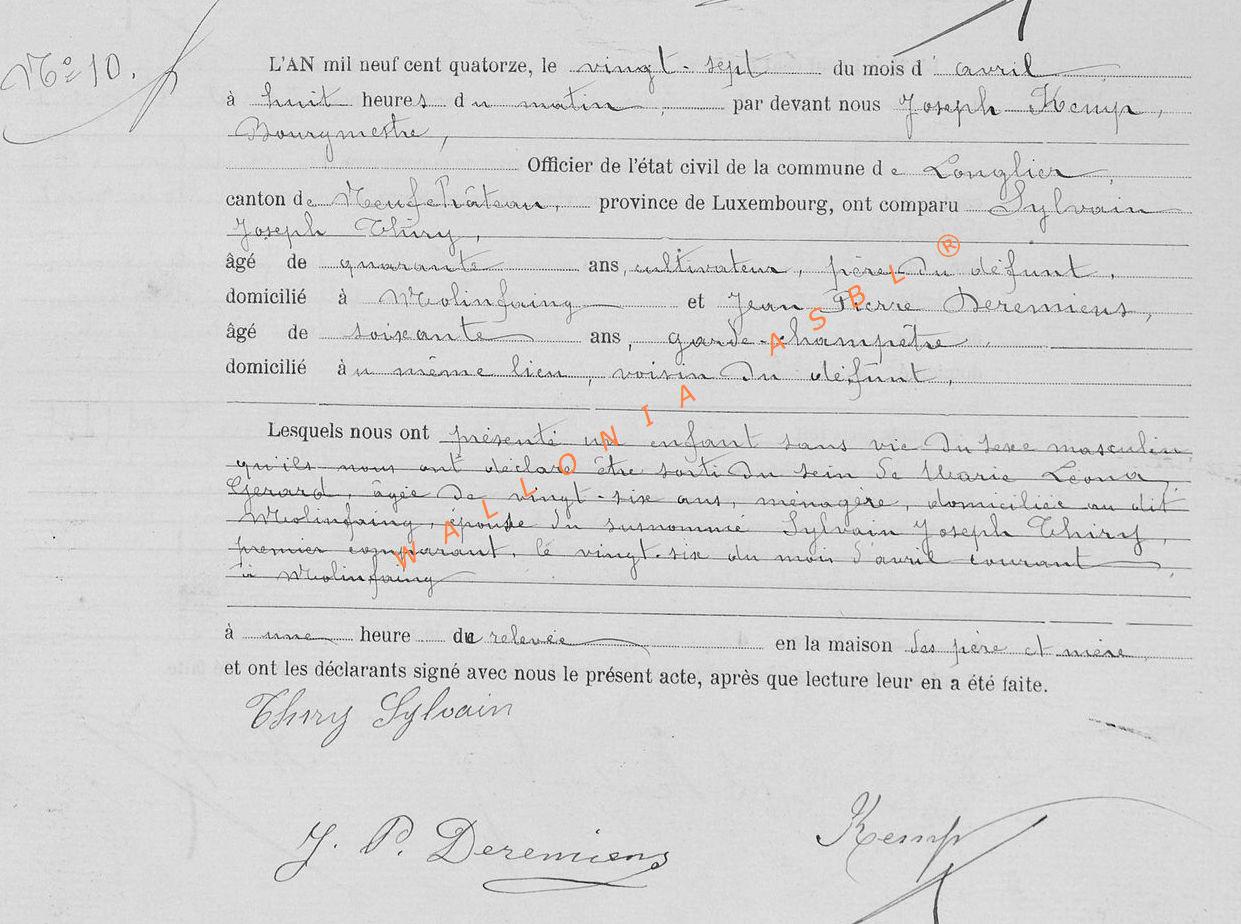 Nº 10.
L'AN mil neuf cent quatorze, le vingt-sept du mois d'avril,
à huit heures du matin, par devant nous Joseph Kemp,
Bourgmestre,
Officier de l'état civil de la commune de Longlier,
canton de Neufchâteau, province de Luxembourg, ont comparu Sylvain
Joseph Thiry,
âgé de quarante ans, cultivateur, père du défunt,
domicilié à Molinfaing et Jean Pierre Deremiens,
âgé de soixante ans, garde-champêtre
domicilié au même lieu, voisin du défunt,
Lesquels nous ont présenté un enfant sans vie du sexe masculin
qu'ils nous ont déclaré être sorti du sein de Marie Léona
Gerard, âgée de vingt-six ans, ménagère, domiciliée au dit
Molinfaing, épouse du susnommé Sylvain Joseph Thiry,
premier comparant, le vingt-six du mois d'avril courant,
à Molinfaing
à une heure de relevée en la maison des père et mère
et ont les déclarants signé avec nous le présent acte, après que lecture leur en a été faite.
Thiry Sylvain
J. P. Deremiens
Kemp
WALLONIA ASBL ®